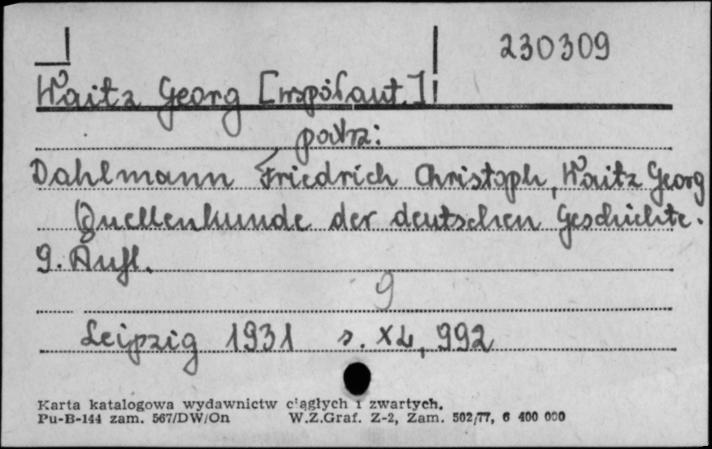 230309
Waitz Georg [współaut.]
patrz:
Dahlmann Friedrich Christoph, Waitz Georg
Quellenkunde der deutschen Geschichte.
9. Aufl.
9
Leipzig 1931 s. XL, 992
Karta katalogowa wydawnictw ciągłych i zwartych.
Pu-B-144 zam. 567/DW/On W.Z.Graf. Z-2, Zam. 502/77, 6 400 000